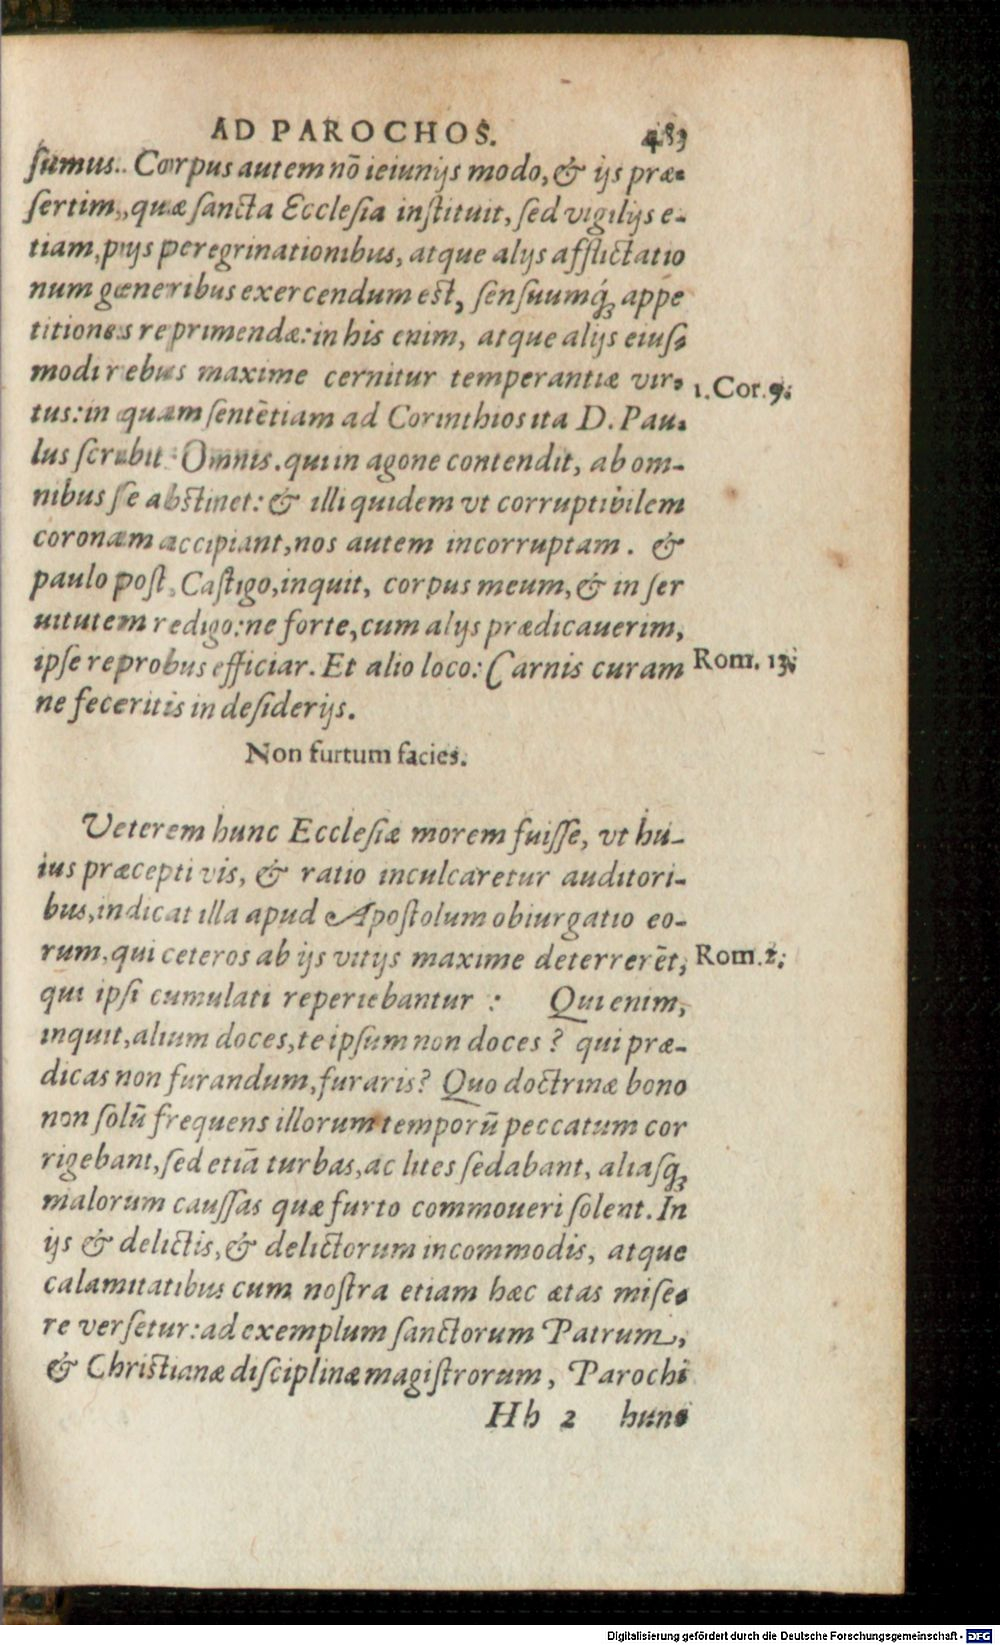 AD PAROCHOS. 483
sumus. Corpus autem nō ieiunijs modo, & ijs præ-
sertim, quæ sancta Ecclesia instituit, sed vigilijs e-
tiam, pijs peregrinationibus, atque alijs afflictatio
num generibus exercendum est, sensuumq́; appe
titiones reprimendæ: in his enim, atque alijs eius-
modi rebus maxime cernitur temperantiæ vir-
1. Cor. 9.
tus: in quam sentētiam ad Corinthios ita D. Pau-
lus scribit: Omnis, qui in agone contendit, ab om-
nibus se abstinet: & illi quidem vt corruptibilem
coronam accipiant, nos autem incorruptam. &
paulo post, Castigo, inquit, corpus meum, & in ser
uitutem redigo: ne forte, cum alijs prædicauerim,
ipse reprobus efficiar. Et alio loco: Carnis curam
Rom. 13.
ne feceritis in desiderijs.
Non furtum facies.
Veterem hunc Ecclesiæ morem fuisse, vt hu-
ius præcepti vis, & ratio inculcaretur auditori-
bus, indicat illa apud Apostolum obiurgatio eo-
rum, qui ceteros ab ijs vitijs maxime deterrerēt,
Rom. 2.
qui ipsi cumulati reperiebantur : Qui enim,
inquit, alium doces, te ipsum non doces ? qui præ-
dicas non furandum, furaris? Quo doctrinæ bono
non solū frequens illorum temporū peccatum cor
rigebant, sed etiā turbas, ac lites sedabant, aliasq́;
malorum caussas quæ furto commoueri solent. In
ijs & delictis, & delictorum incommodis, atque
calamitatibus cum nostra etiam hæc ætas mise-
re versetur: ad exemplum sanctorum Patrum,
& Christianæ disciplinæ magistrorum, Parochi
Hh 2 hunc
Digitalisierung gefördert durch die Deutsche Forschungsgemeinschaft - DFG